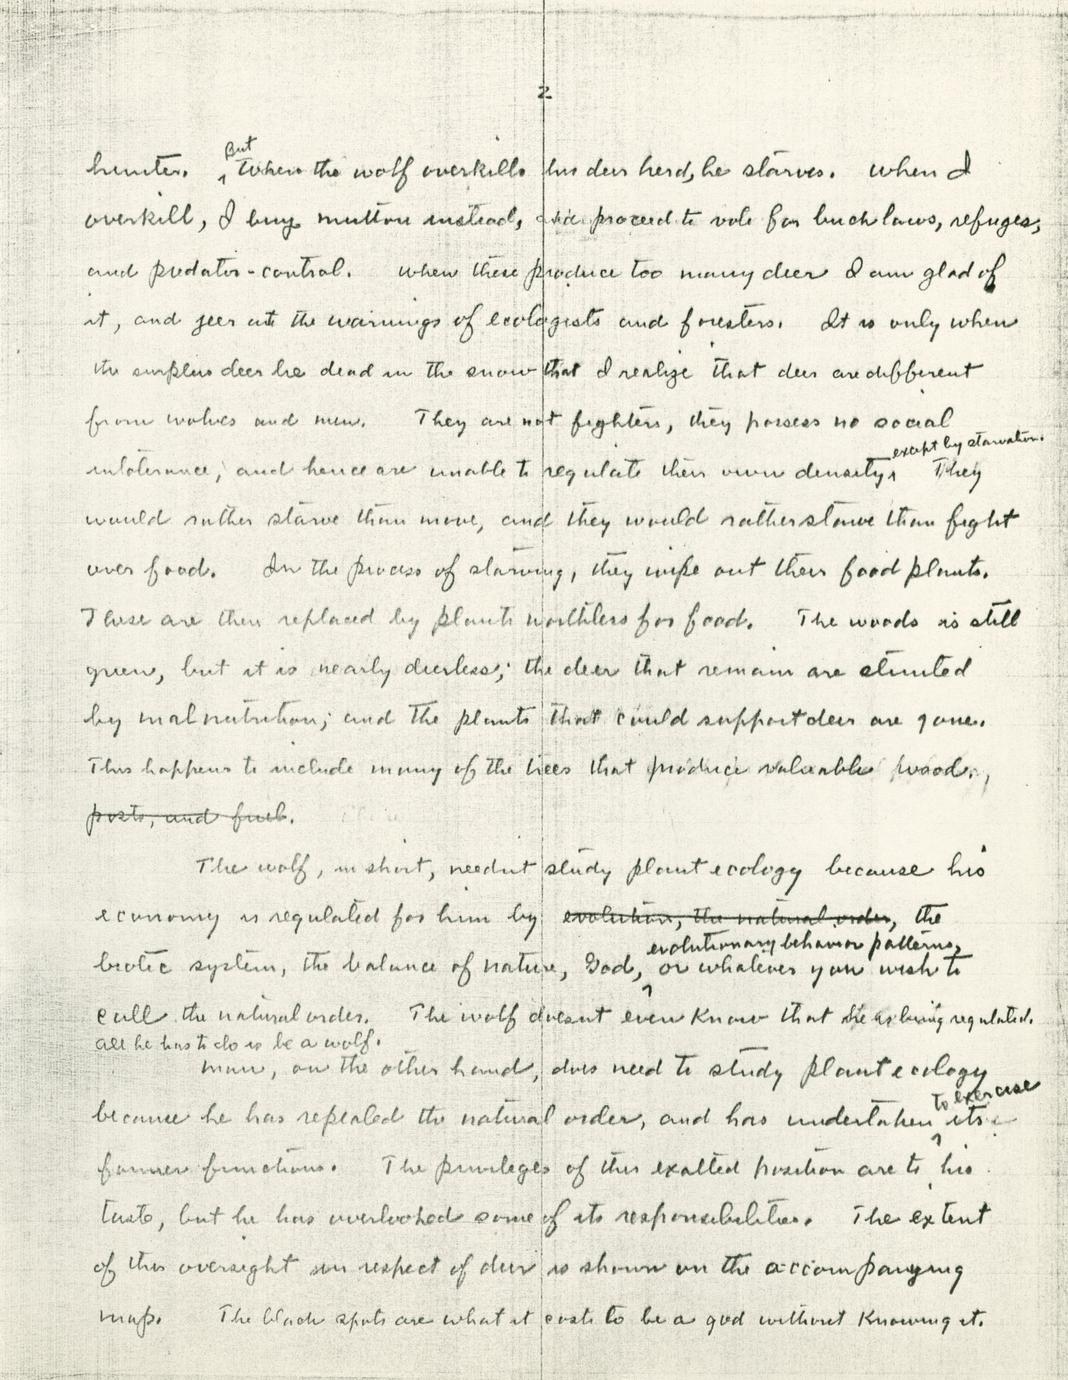 2
But
hunter. When the wolf overkills his deer herd, he starves. When I
overkill, I buy mutton instead, and proceed to vote for buck laws, refuges,
and predator-control. When these produce too many deer I am glad of
it, and jeer at the warnings of ecologists and foresters. It is only when
the surplus deer lie dead in the snow that I realize that deer are different
from wolves and men. They are not fighters, they possess no social
except by starvation.
intolerance, and hence are unable to regulate their own density. They
would rather starve than move, and they would rather starve than fight
over food. In the process of starving, they wipe out their food plants.
These are then replaced by plants worthless for food. The woods is still
green, but it is nearly deerless; the deer that remain are stunted
by malnutrition; and the plants that could support deer are gone.
This happens to include many of the trees that produce valuable wood,
posts, and fuel.
The wolf, in short, neednt study plant ecology because his
economy is regulated for him by evolution, the natural order, the
evolutionary behavior patterns,
biotic system, the balance of nature, God, or whatever you wish to
call the natural order. The wolf doesnt even know that he is being regulated.
all he has to do is be a wolf.
Man, on the other hand, does need to study plant ecology
to exercise
because he has repealed the natural order, and has undertaken its
former functions. The privileges of this exalted position are to his
taste, but he has overlooked some of its responsibilities. The extent
of this oversight in respect of deer is shown on the accompanying
map. The black spots are what it costs to be a god without knowing it.